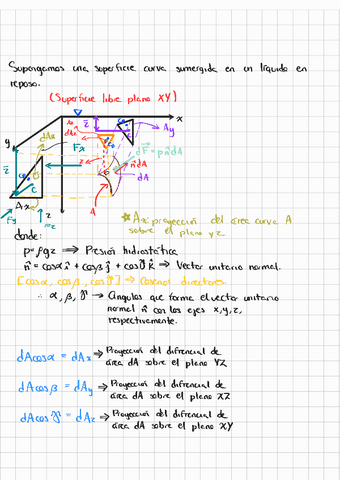 Supongamos una superficie curva sumergida en un líquido en
reposo.
(Superficie libre plano XY)
x
Ay
dAx
Fx
dF = p n̂ dA
n̂dA
dA
y
z̄
z̄
z
A
Ax
Fy
C
z
★ Ax: proyección del área curva A
sobre el plano yz
donde:
p = ρgz ⟹ Presión hidrostática
n̂ = cosα î + cosβ ĵ + cosγ k̂ → Vector unitario normal.
[cosα, cosβ, cosγ] → Cosenos directores
∴ α, β, γ → Ángulos que forma el vector unitario
normal n̂ con los ejes x,y,z,
respectivamente.
dAcosα = dAx → Proyección del difrencial de
área dA sobre el plano YZ
dAcosβ = dAy → Proyección del difrencial de
área dA sobre el plano XZ
dAcosγ = dAz → Proyección del difrencial de
área dA sobre el plano XY